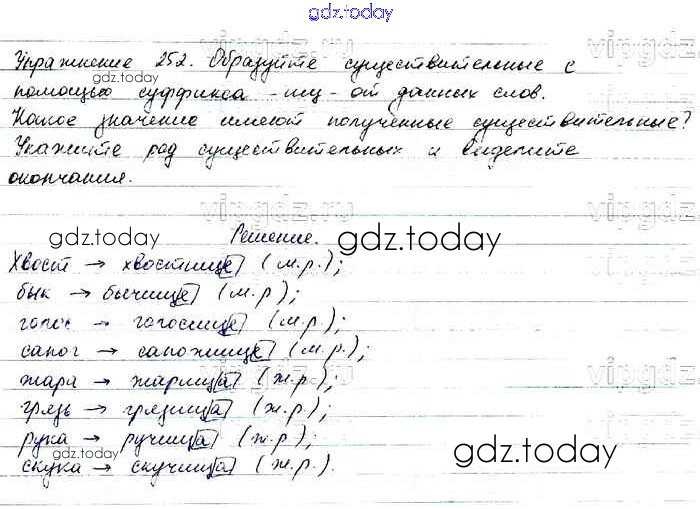 gdz.today
Упражнение 252. Образуйте существительные с
gdz.today
помощью суффикса -ищ- от данных слов.
Какое значение имеют полученные существительные?
Укажите род существительных и выделите
окончания.
vipgdz.ru
vipgdz.ru
gdz.today
Решение.
gdz.today
Хвост → хвостище (м.р.);
бык → бычище (м.р.);
голос → голосище (м.р.);
сапог → сапожище (м.р.);
жара → жарища (ж.р.);
грязь → грязища (ж.р.);
рука → ручища (ж.р.);
скука → скучища (ж.р.).
gdz.today